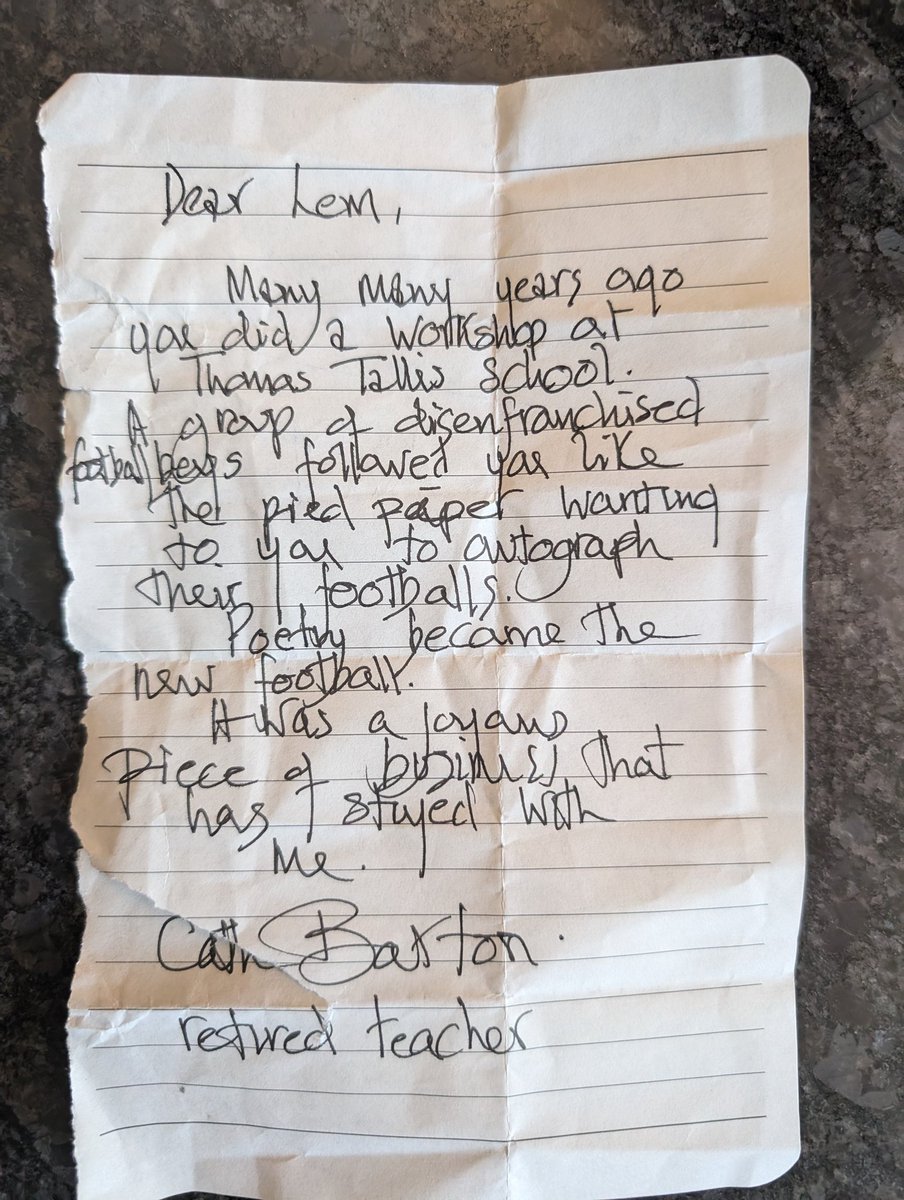 Dear Lem,
Many many years ago
you did a workshop at
Thomas Tallis School.
A group of disenfranchised
football boys followed you like
the pied piper wanting
to you to autograph
their footballs.
Poetry became the
new football.
It was a joyous
piece of business that
has stayed with
me.
Cath Barton.
retired teacher